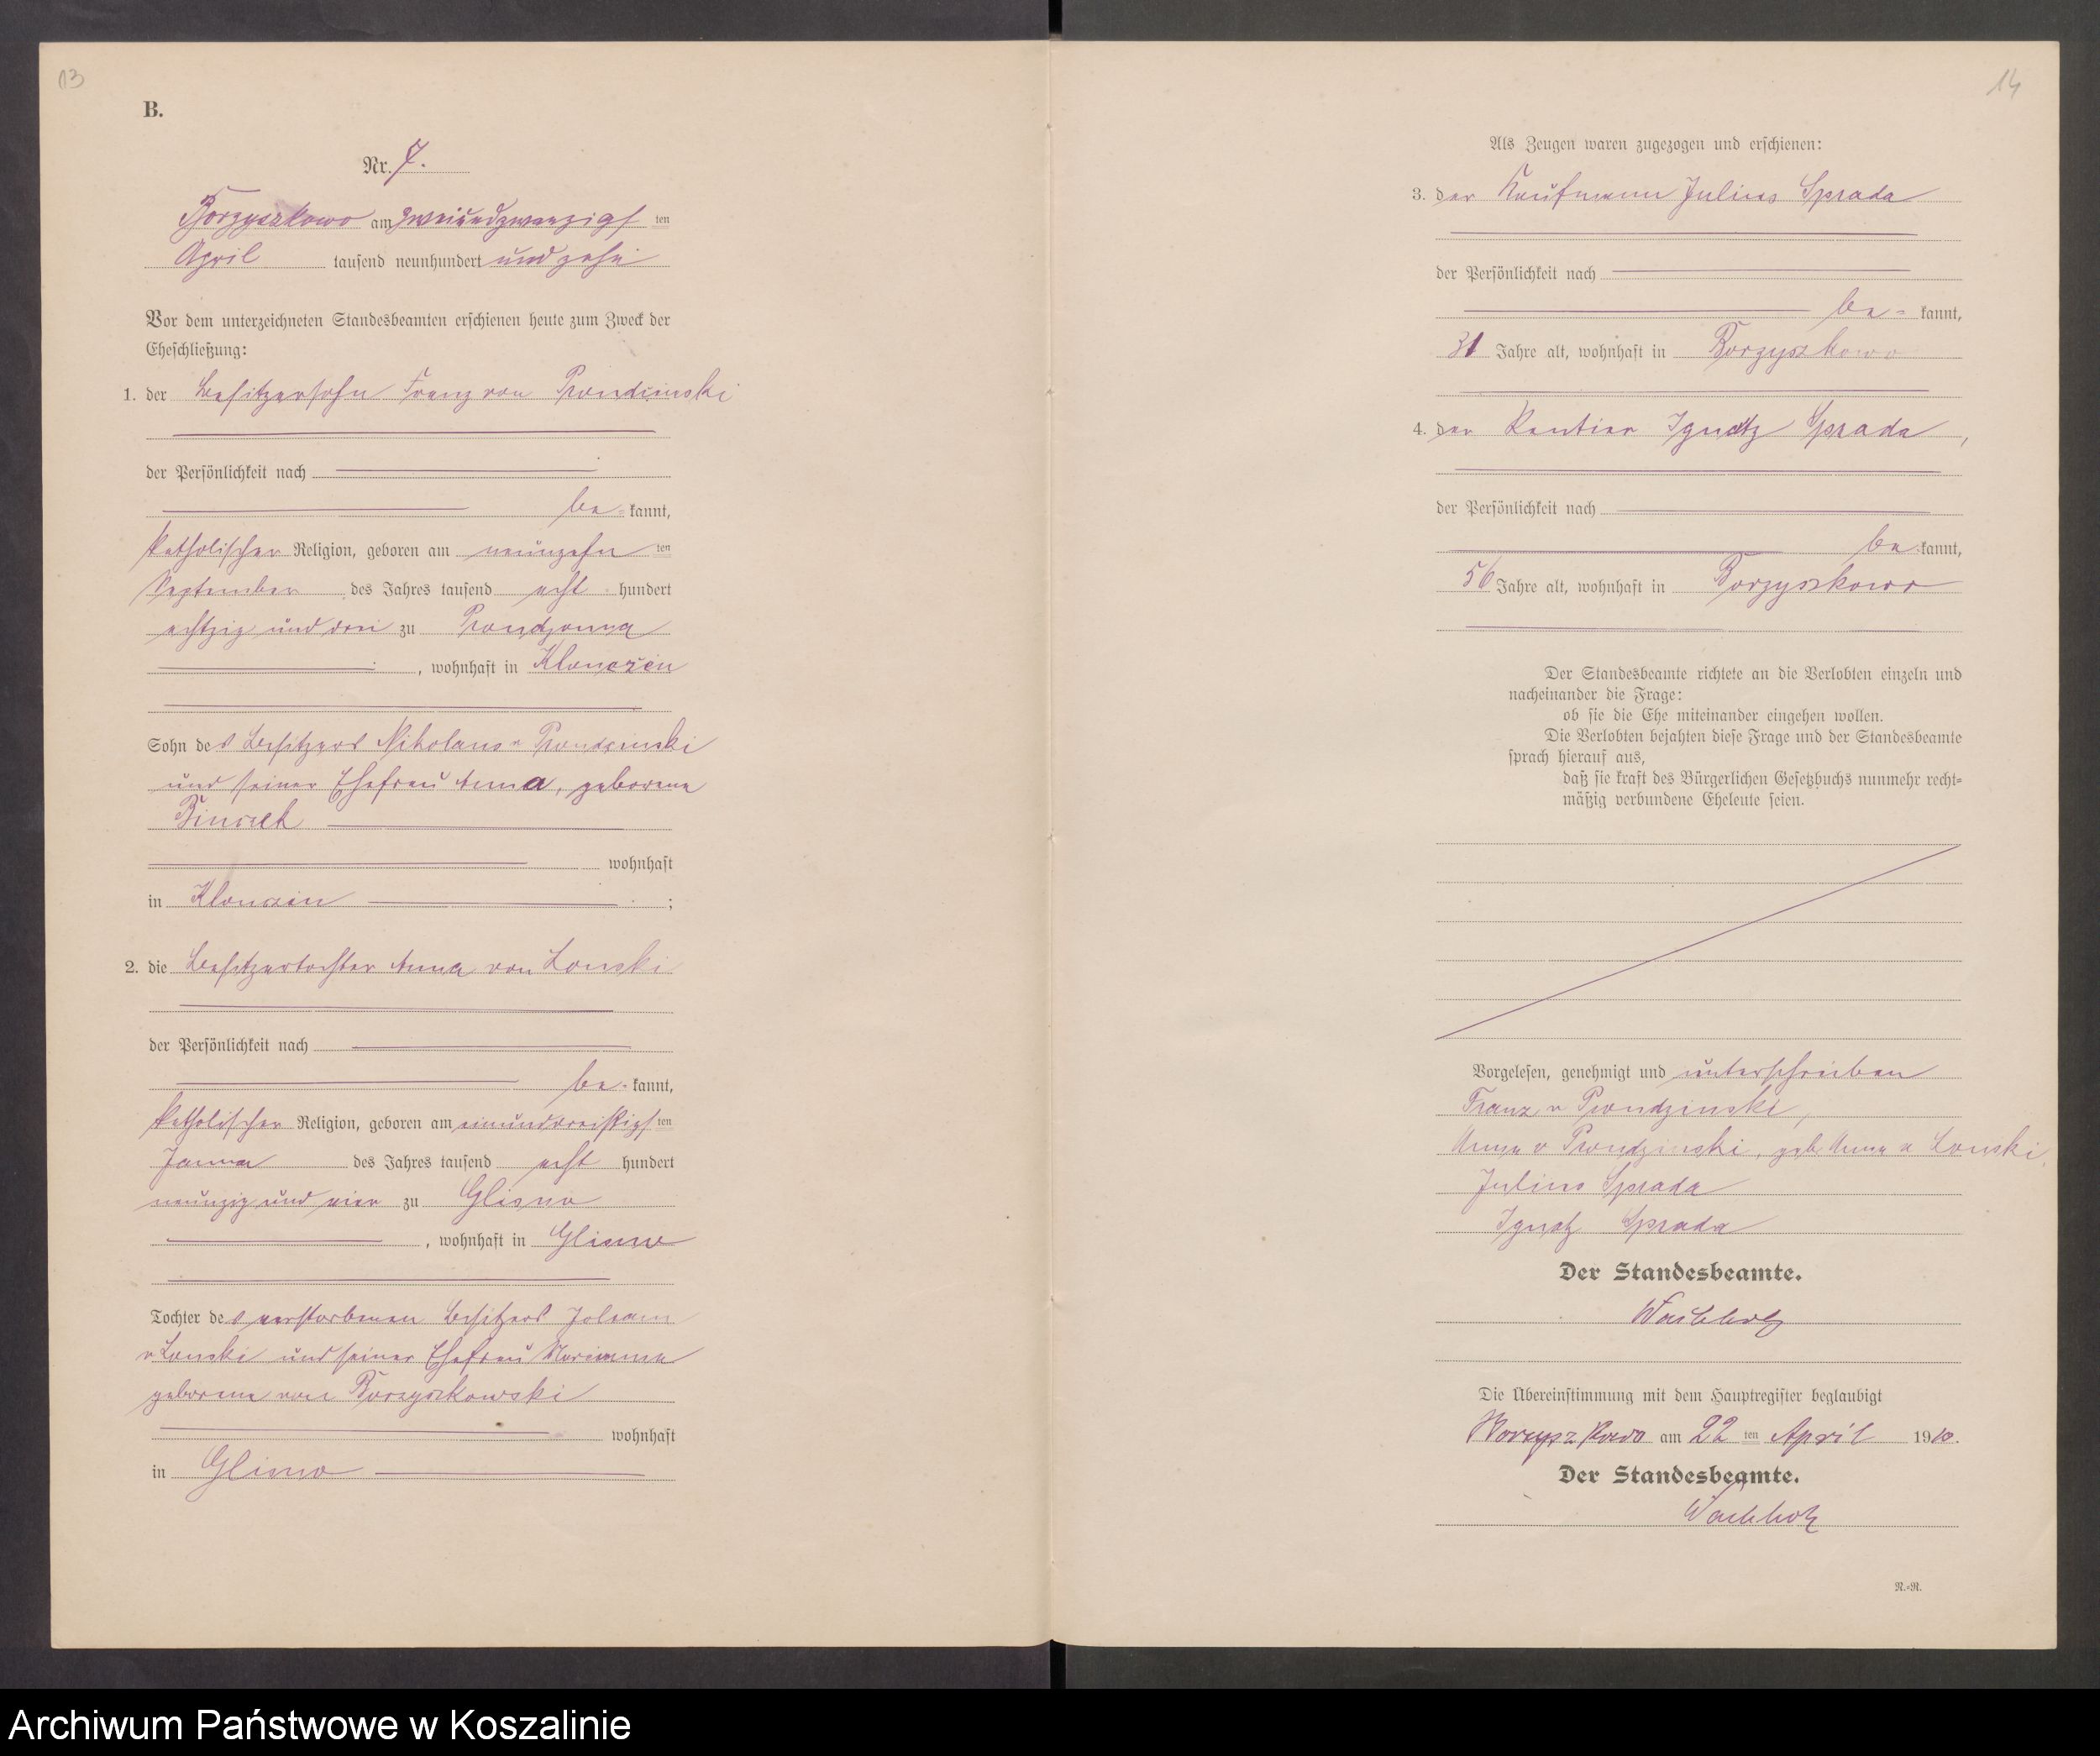 13
B.
Nr. 7.
Borzyszkowo am zweiundzwanzigs ten
April tausend neunhundert und zehn
Vor dem unterzeichneten Standesbeamten erschienen heute zum Zweck der
Eheschließung:
1. der Besitzersohn Franz von Prondzinski
der Persönlichkeit nach
be= kannt,
katholischer Religion, geboren am neunzehn ten
September des Jahres tausend acht hundert
achtzig und drei zu Prondzonna
, wohnhaft in Klonczin
Sohn des Besitzers Nikolaus v Prondzinski
und seiner Ehefrau Anna, geborene
wohnhaft
in Klonczin ;
2. die Besitzertochter Anna von Lonski
der Persönlichkeit nach
be= kannt,
katholischer Religion, geboren am einunddreißigs ten
Januar des Jahres tausend acht hundert
neunzig und vier zu Glisno
, wohnhaft in Glisno
Tochter des verstorbenen Besitzers Johann
v Lonski und seiner Ehefrau Marianna
geborene von Borzyszkowski
wohnhaft
in Glisno
14
Als Zeugen waren zugezogen und erschienen:
3. der Kaufmann Julius Sprada
der Persönlichkeit nach
be= kannt,
31 Jahre alt, wohnhaft in Borzyszkowo
4. der Rentier Ignatz Sprada,
der Persönlichkeit nach
be= kannt,
56 Jahre alt, wohnhaft in Borzyszkowo
Der Standesbeamte richtete an die Verlobten einzeln und
nacheinander die Frage:
ob sie die Ehe miteinander eingehen wollen.
Die Verlobten bejahten diese Frage und der Standesbeamte
sprach hierauf aus,
daß sie kraft des Bürgerlichen Gesetzbuchs nunmehr recht=
mäßig verbundene Eheleute seien.
Vorgelesen, genehmigt und unterschrieben
Franz v Prondzinski,
Anna v Prondzinski, geb. Anna v Lonski,
Julius Sprada
Ignatz Sprada
Der Standesbeamte.
Wachholz
Die Übereinstimmung mit dem Hauptregister beglaubigt
Borzyszkowo am 22 ten April 1910.
Der Standesbeamte.
Wachholz
N.=N.
Archiwum Państwowe w Koszalinie